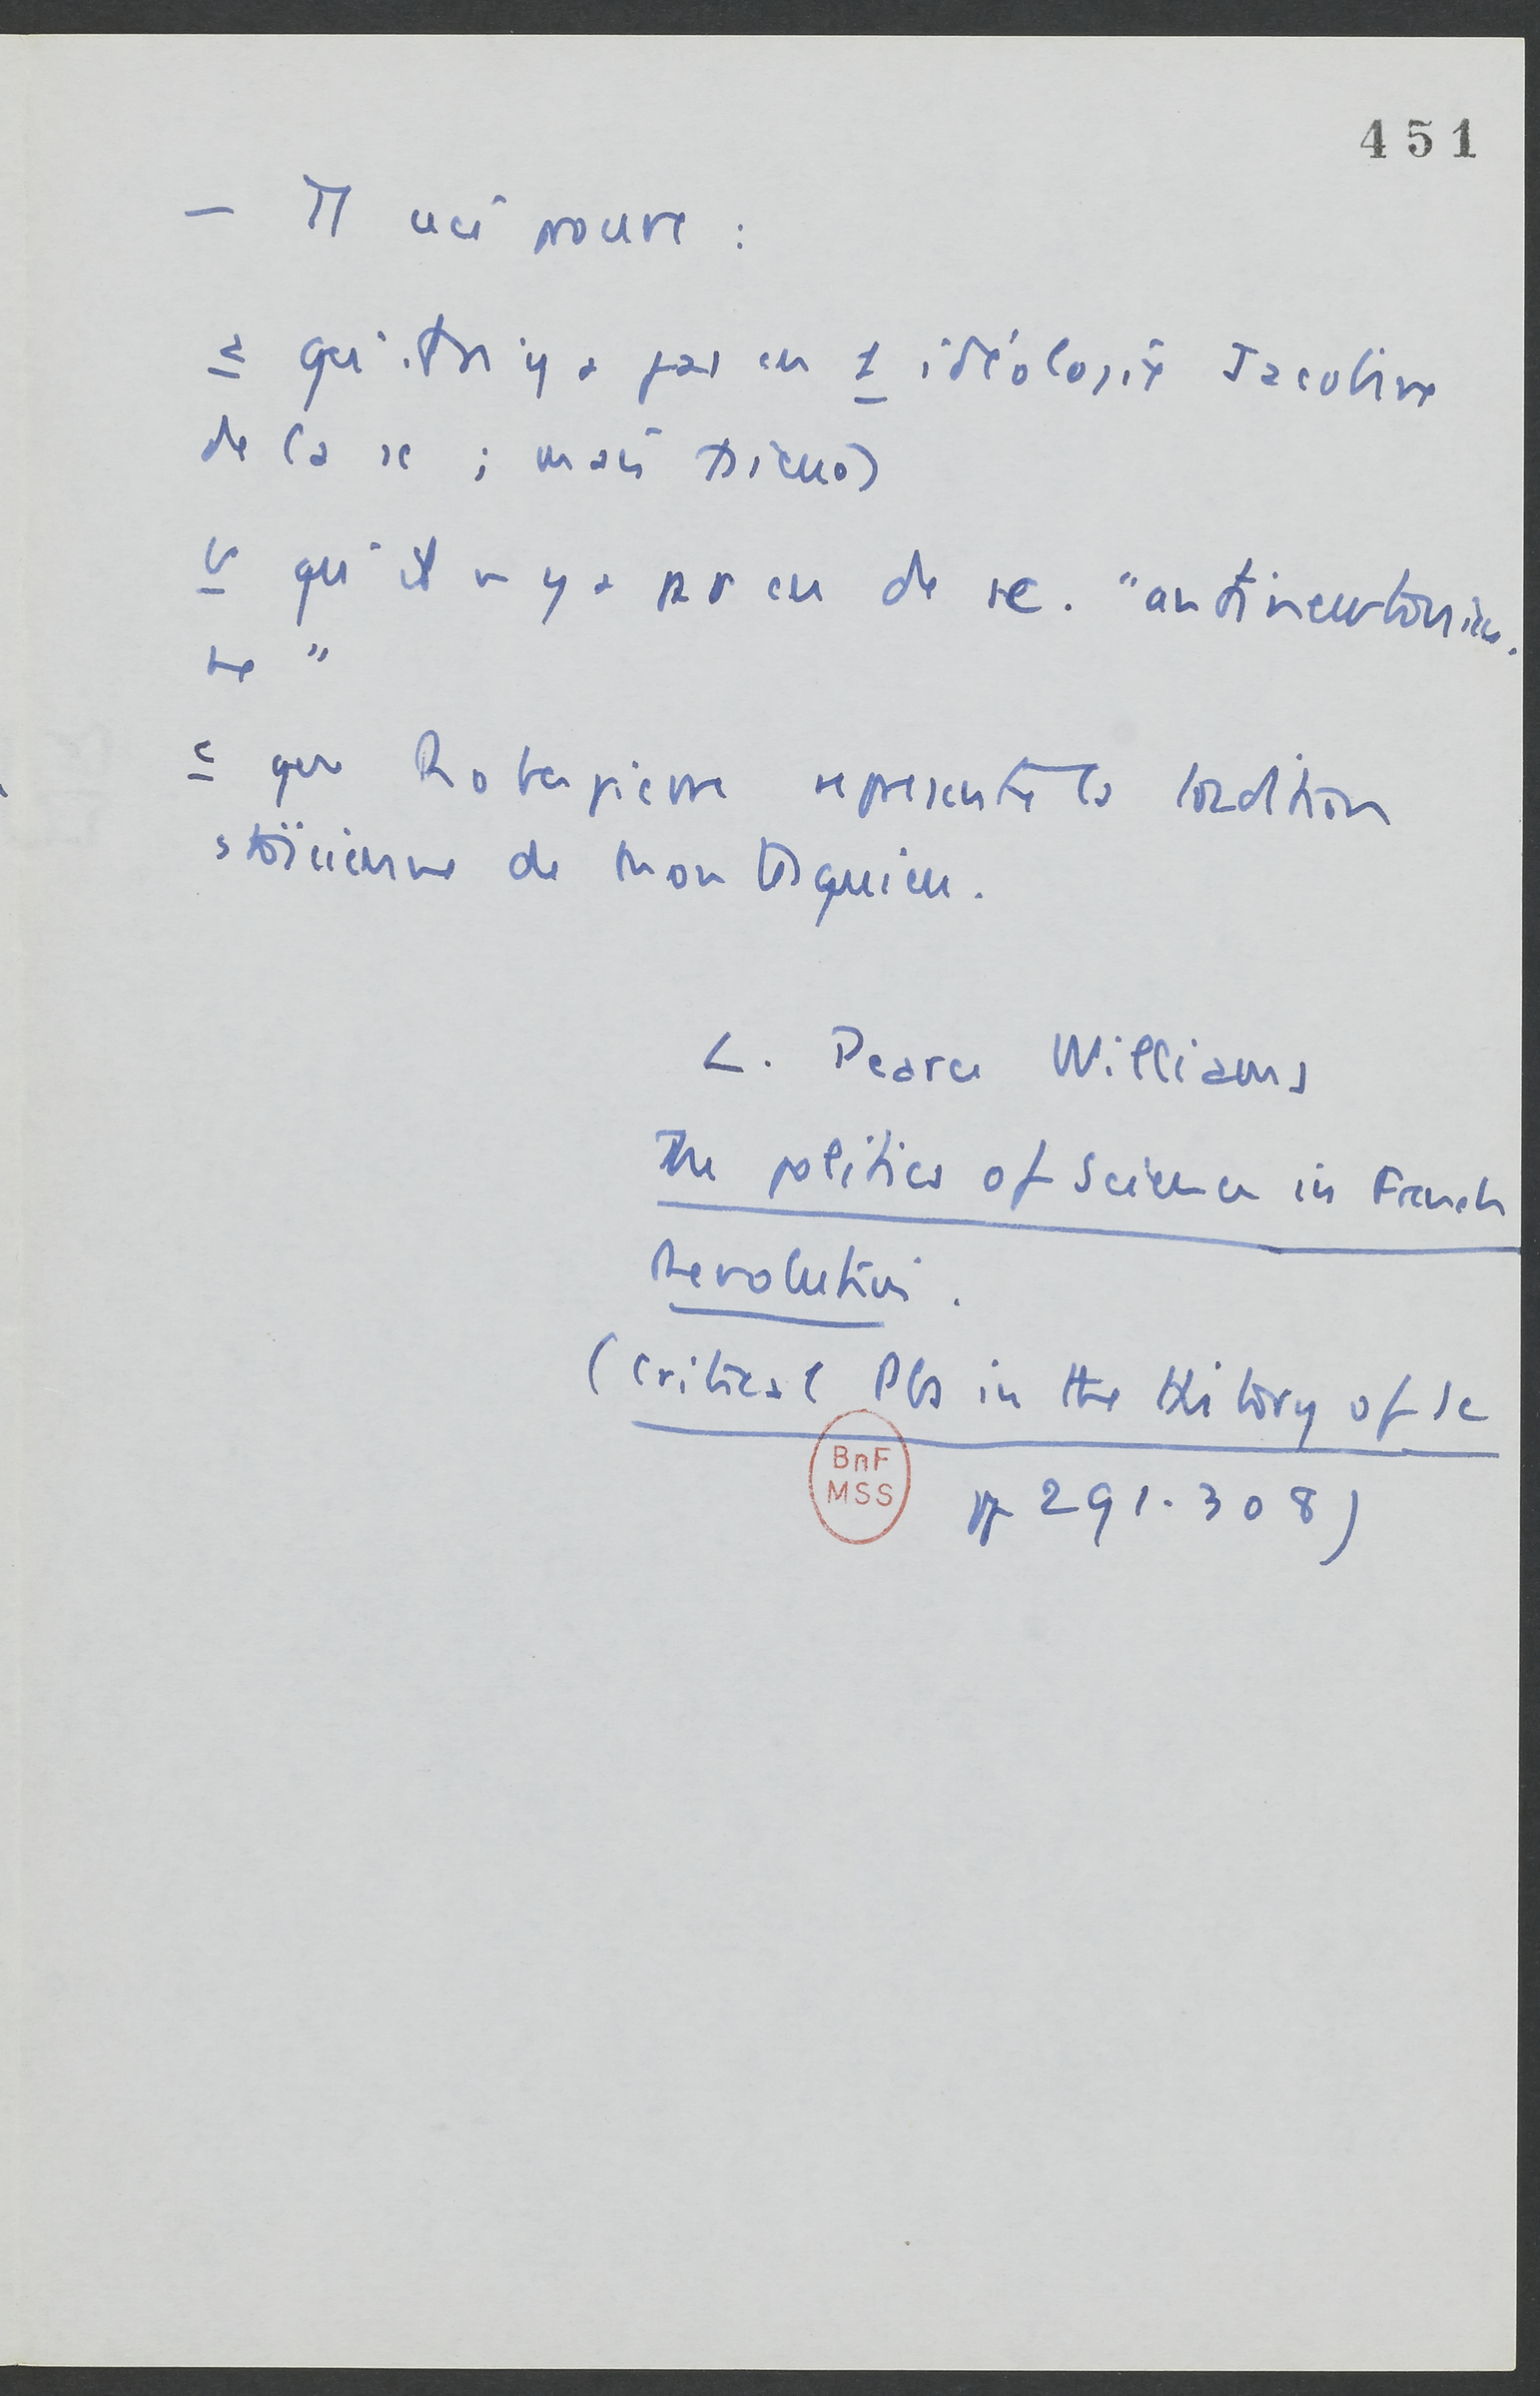 451
— Tt ceci prouve :
a qu'il n'y a pas eu 1 idéologie Jacobine
de la sc ; mais
b qu'il n y a pas eu de sc. "antinewtonien.
ne "
c que Robespierre represente la tradition
stoïcienne de Montesquieu.
L. Pearce Williams
The politics of Science in French
Revolution.
(Critical Pbs in the History of Sc
BnF
MSS
pp 291-308)